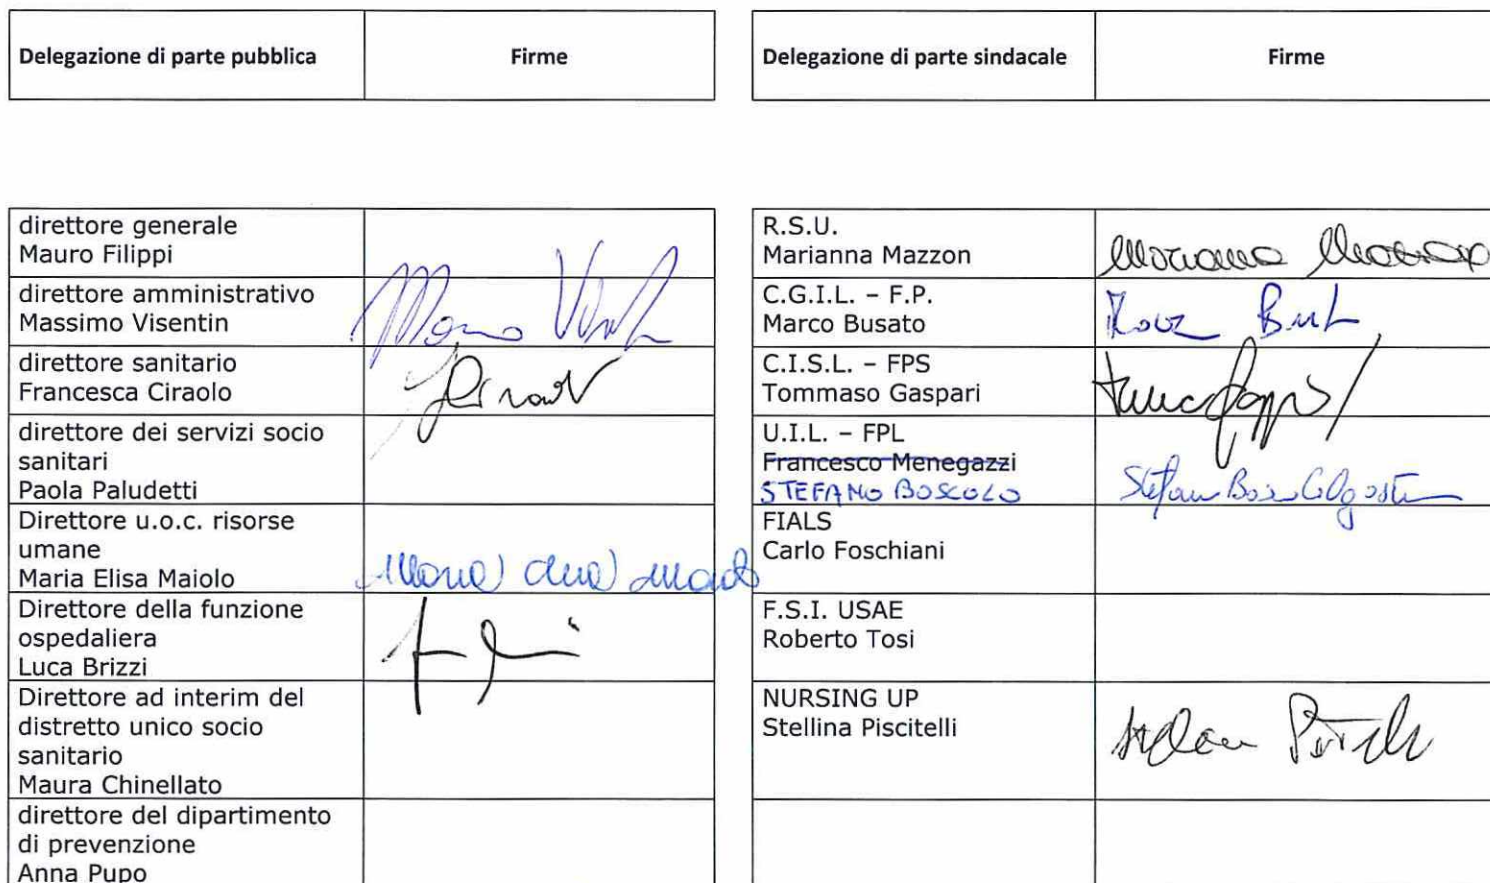 Delegazione di parte pubblica
Firme
Delegazione di parte sindacale
Firme
direttore generale
Mauro Filippi
direttore amministrativo
Massimo Visentin
direttore sanitario
Francesca Ciraolo
direttore dei servizi socio
sanitari
Paola Paludetti
Direttore u.o.c. risorse
umane
Maria Elisa Maiolo
Direttore della funzione
ospedaliera
Luca Brizzi
Direttore ad interim del
distretto unico socio
sanitario
Maura Chinellato
direttore del dipartimento
di prevenzione
Anna Pupo
R.S.U.
Marianna Mazzon
C.G.I.L. – F.P.
Marco Busato
C.I.S.L. – FPS
Tommaso Gaspari
U.I.L. – FPL
Francesco Menegazzi
STEFANO BOSCOLO
FIALS
Carlo Foschiani
F.S.I. USAE
Roberto Tosi
NURSING UP
Stellina Piscitelli